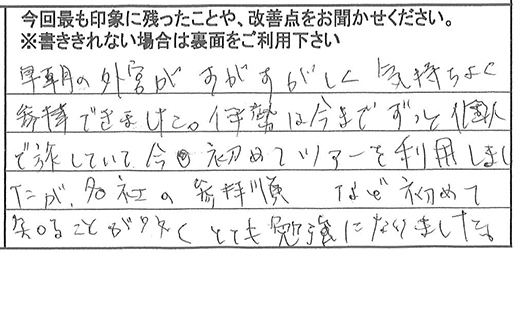 今回最も印象に残ったことや、改善点をお聞かせください。
※書ききれない場合は裏面をご利用下さい
早朝の外宮がすがすがしく気持ちよく
参拝できました。伊勢は今までずっと個人
で旅していて今回初めてツアーを利用しまし
たが、各社の参拝順など初めて
知ることが多くとても勉強になりました。